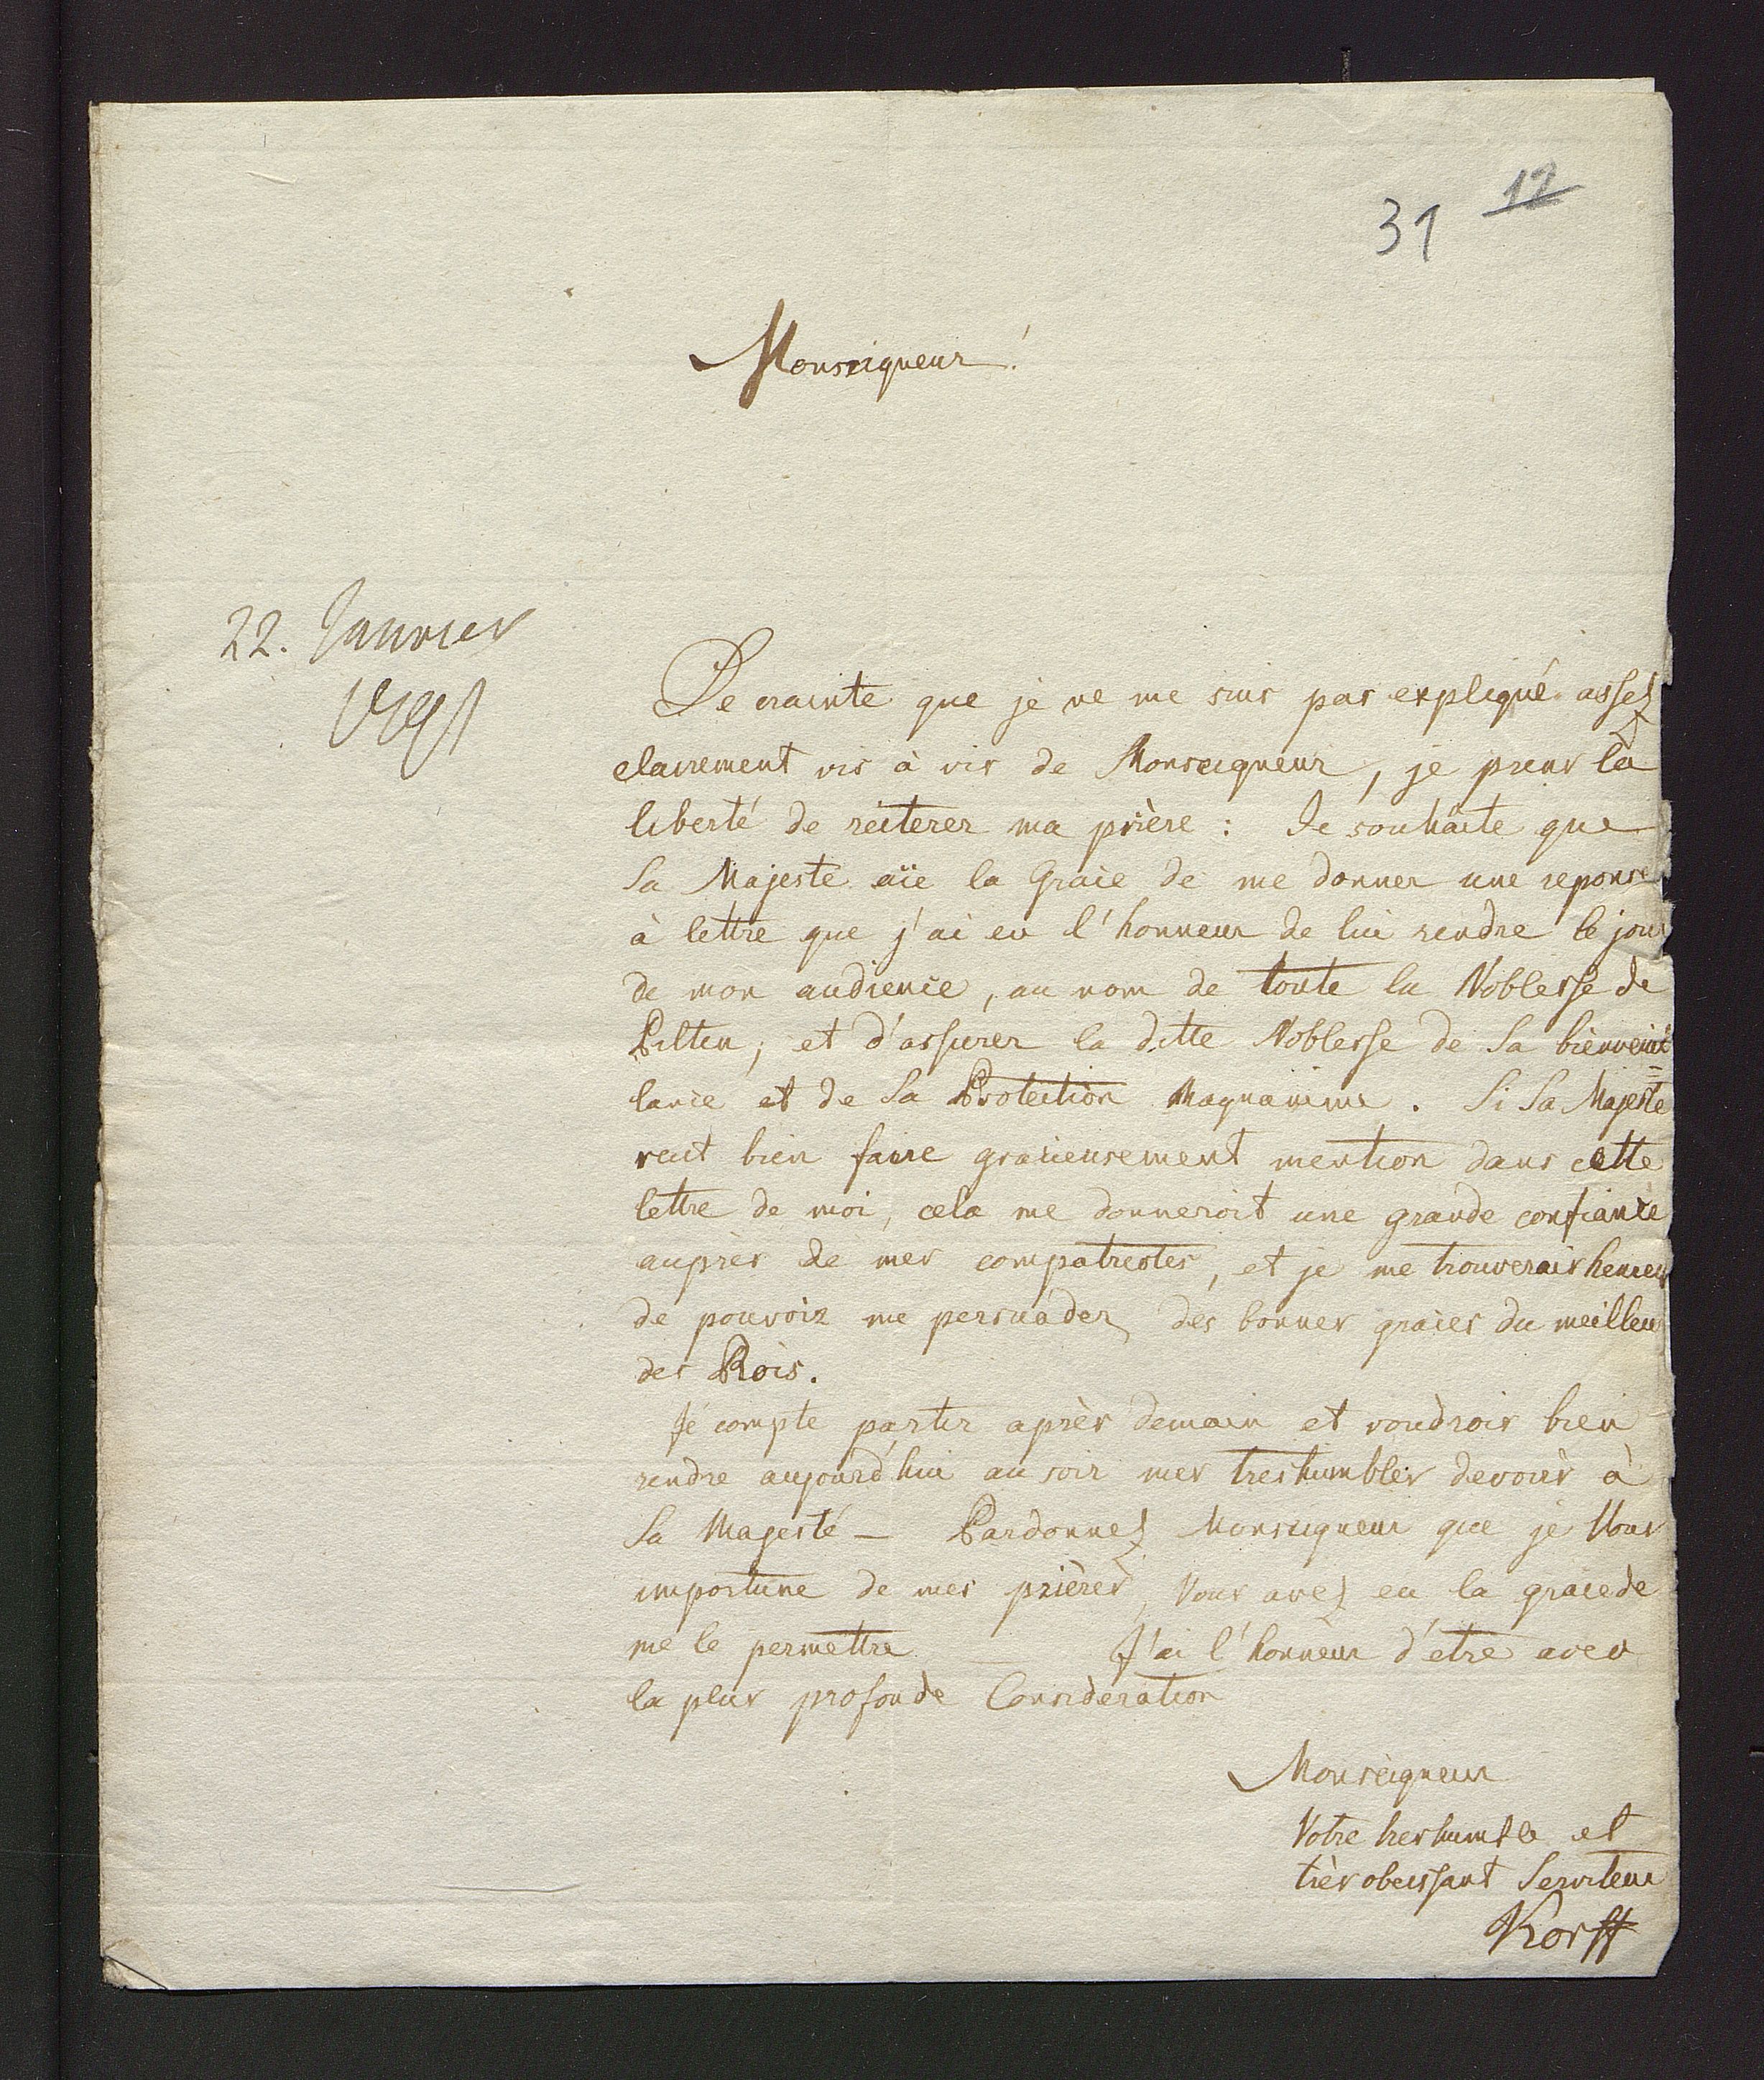 12
31
Monseigneur!
22. Janvier
De crainte que je ne me suis pas expliqué assez
clairement vis à vis de Monseigneur, je prens la
liberté de reiterer ma prière : Je souhaite que
Sa Majeste aïe la Grace de me donner une reponse
à lettre que j'ai eu l'honneur de lui rendre le jour
de mon audience, au nom de toute la Noblesse de
Pilten; et d'assurer la ditte Noblesse de Sa bienveuil=
lance et de Sa Protection Magnanime. Si Sa Majesté
veut bien faire gracieusement mention dans cette
lettre de moi, cela me donneroit une grande confiance
auprès de mes compatriotes, et je me trouverais heureux
de pouvoir me persuader des bonnes graces du meilleur
des Rois.
Je compte partir après demain et voudrois bien
rendre aujourd'hui au soir mes treshumbles devoirs à
Sa Majesté — Pardonnez Monseigneur que je Vous
importune de mes prières, Vous avez eu la grace de
me le permettre — J'ai l'honneur d'etre avec
la plus profonde Consideration
Monseigneur
Votre treshumble et
très obeissant Serviteur
Korff